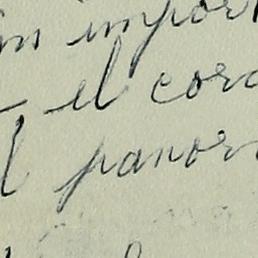 in impor
el cora
l panor